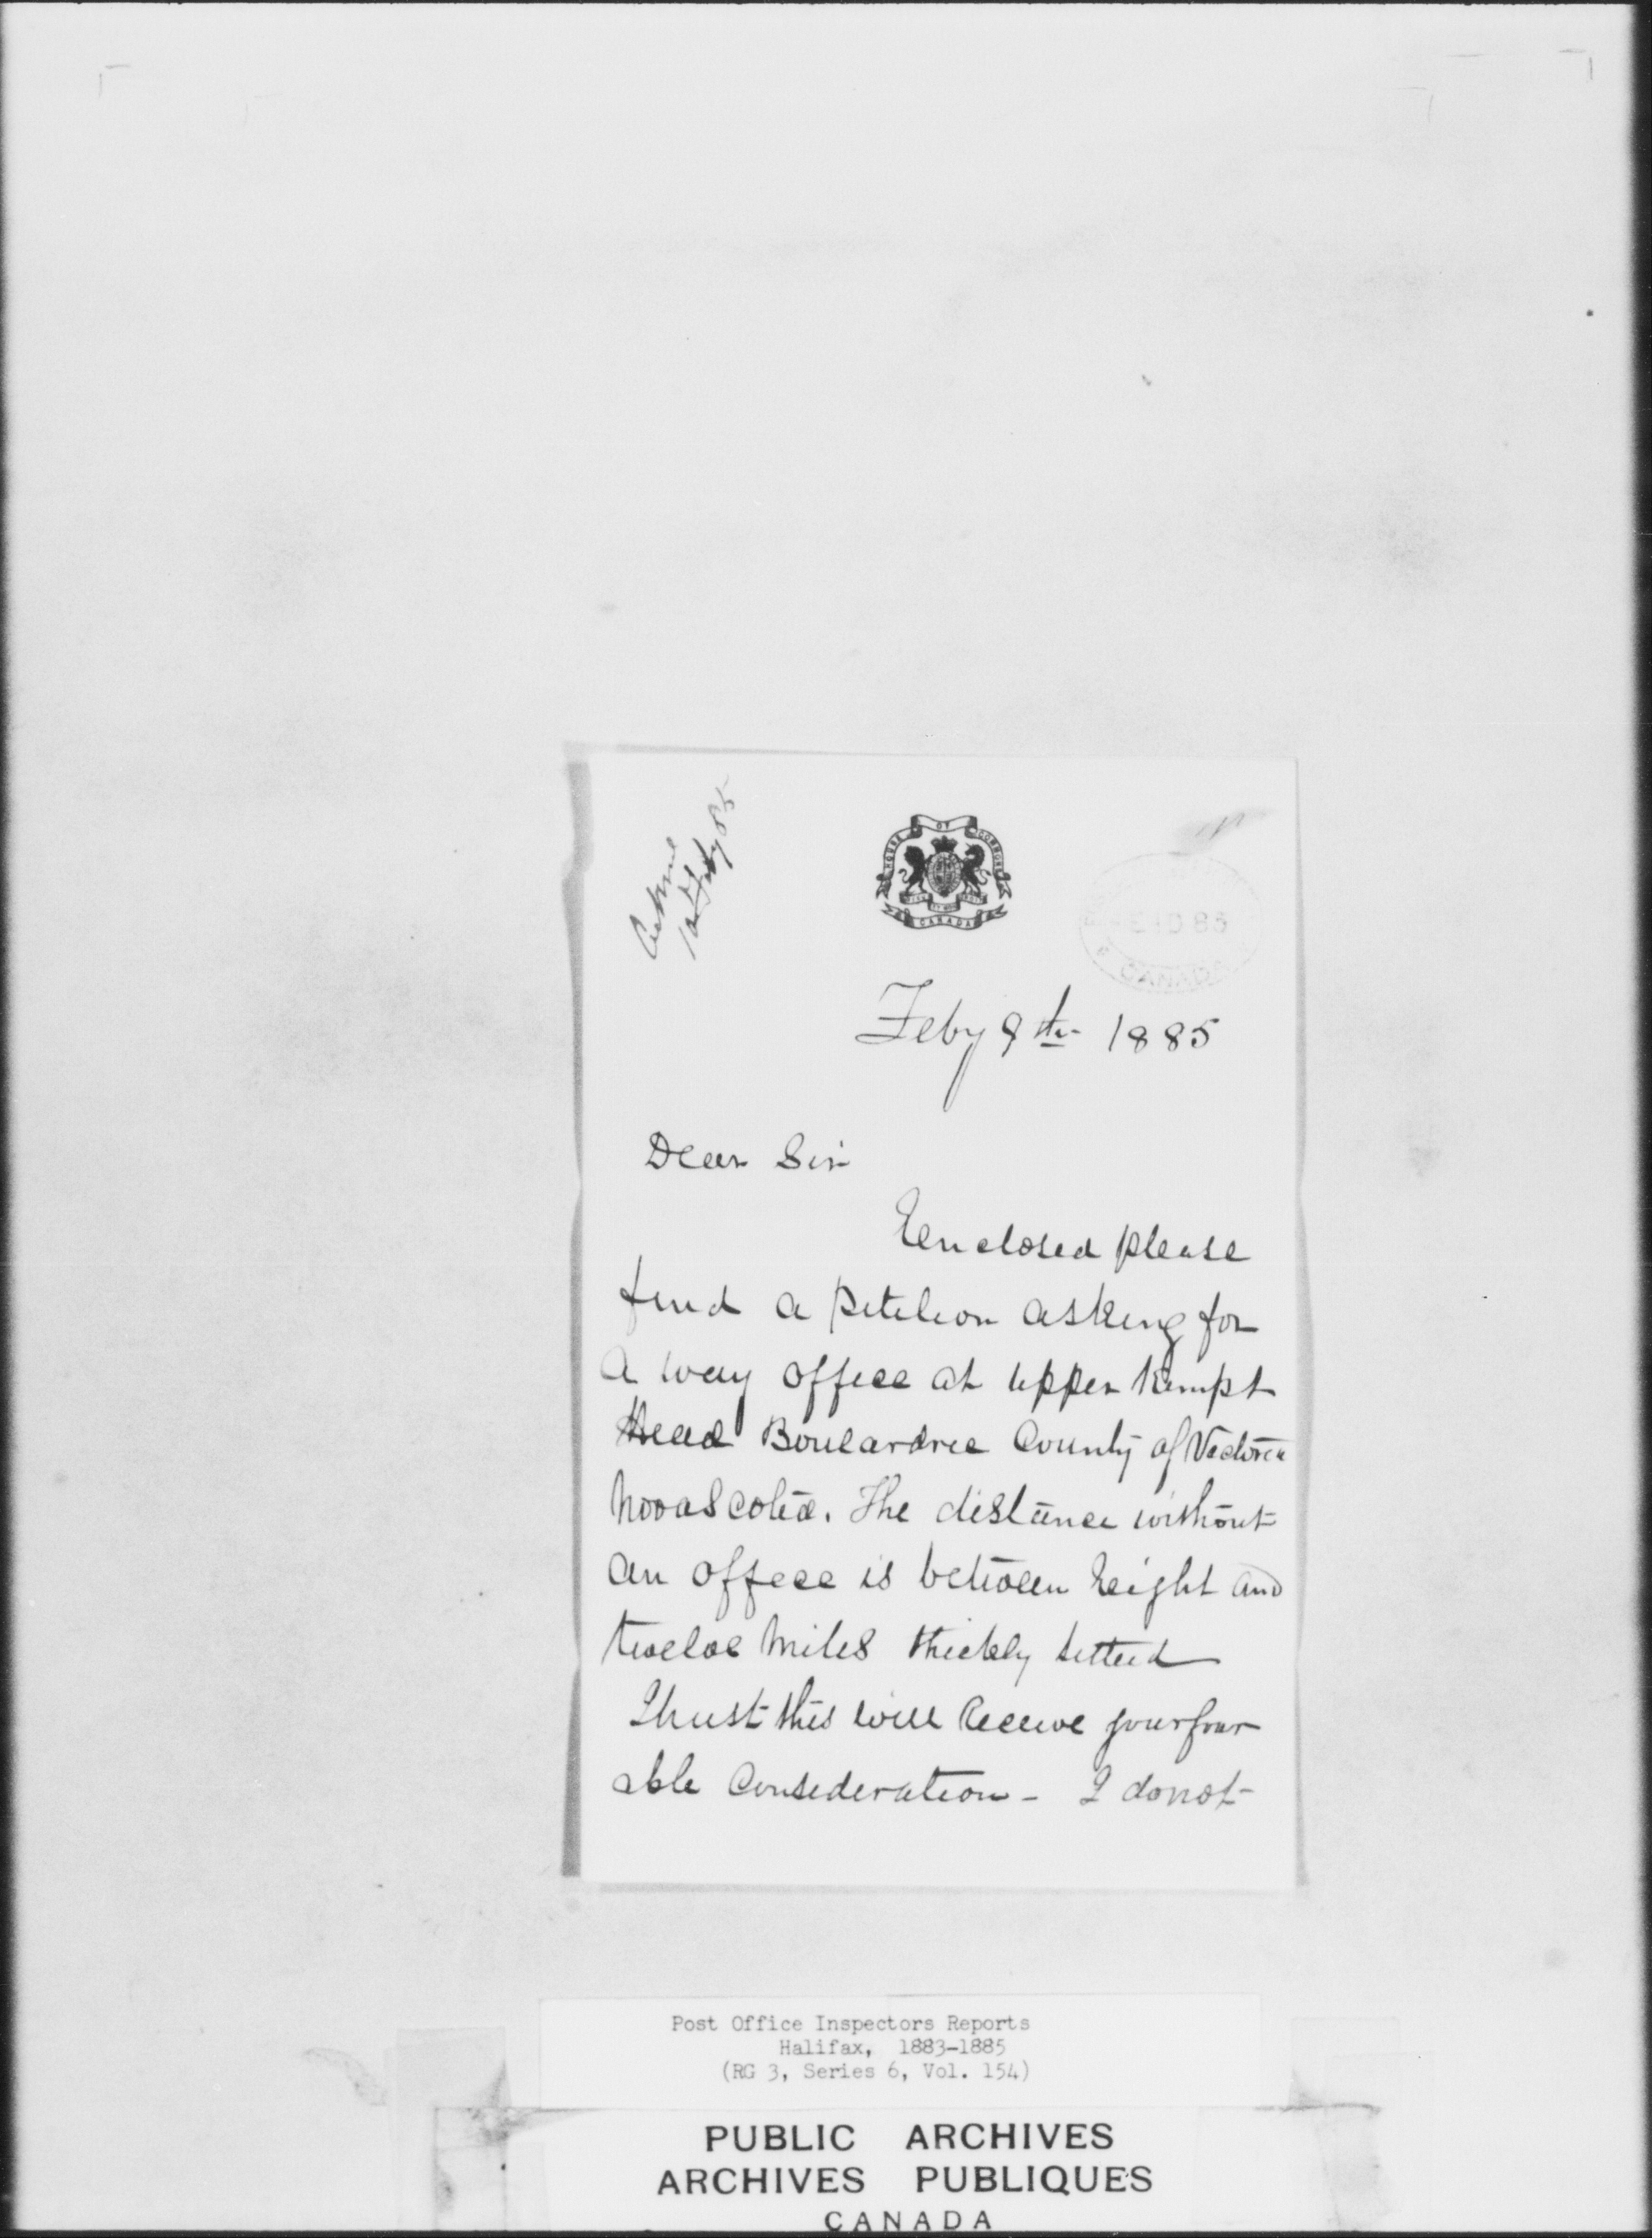 10th Feby 85
HOUSE OF COMMONS
CANADA
FE 10 85
CANADA
Feby 9th 1885
Dear Sir
Enclosed please
find a petition asking for
a way office at upper Kempt
Head Boulardree County of Victoria
Nova Scotia. The distance without
an office is between Eeight and
twelve miles thickly setteld
I trust this will receive your favor
able Consideration - I do not
Post Office Inspectors Reports
Halifax, 1883-1885
(RG 3, Series 6, Vol. 154)
PUBLIC ARCHIVES
ARCHIVES PUBLIQUES
CANADA